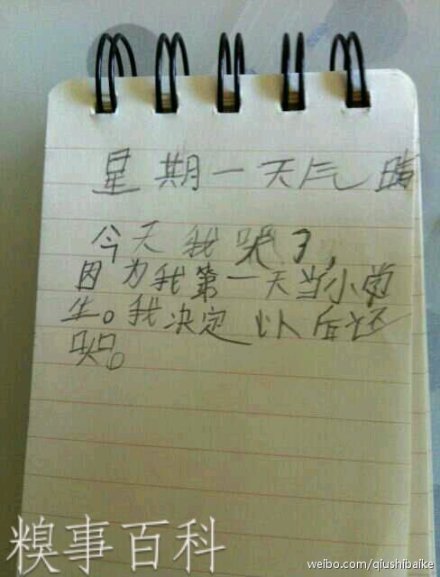 星期一天气晴
今天我哭了,
因为我第一天当小学
生。我决定以后还
哭。
糗事百科
weibo.com/qiushibaike